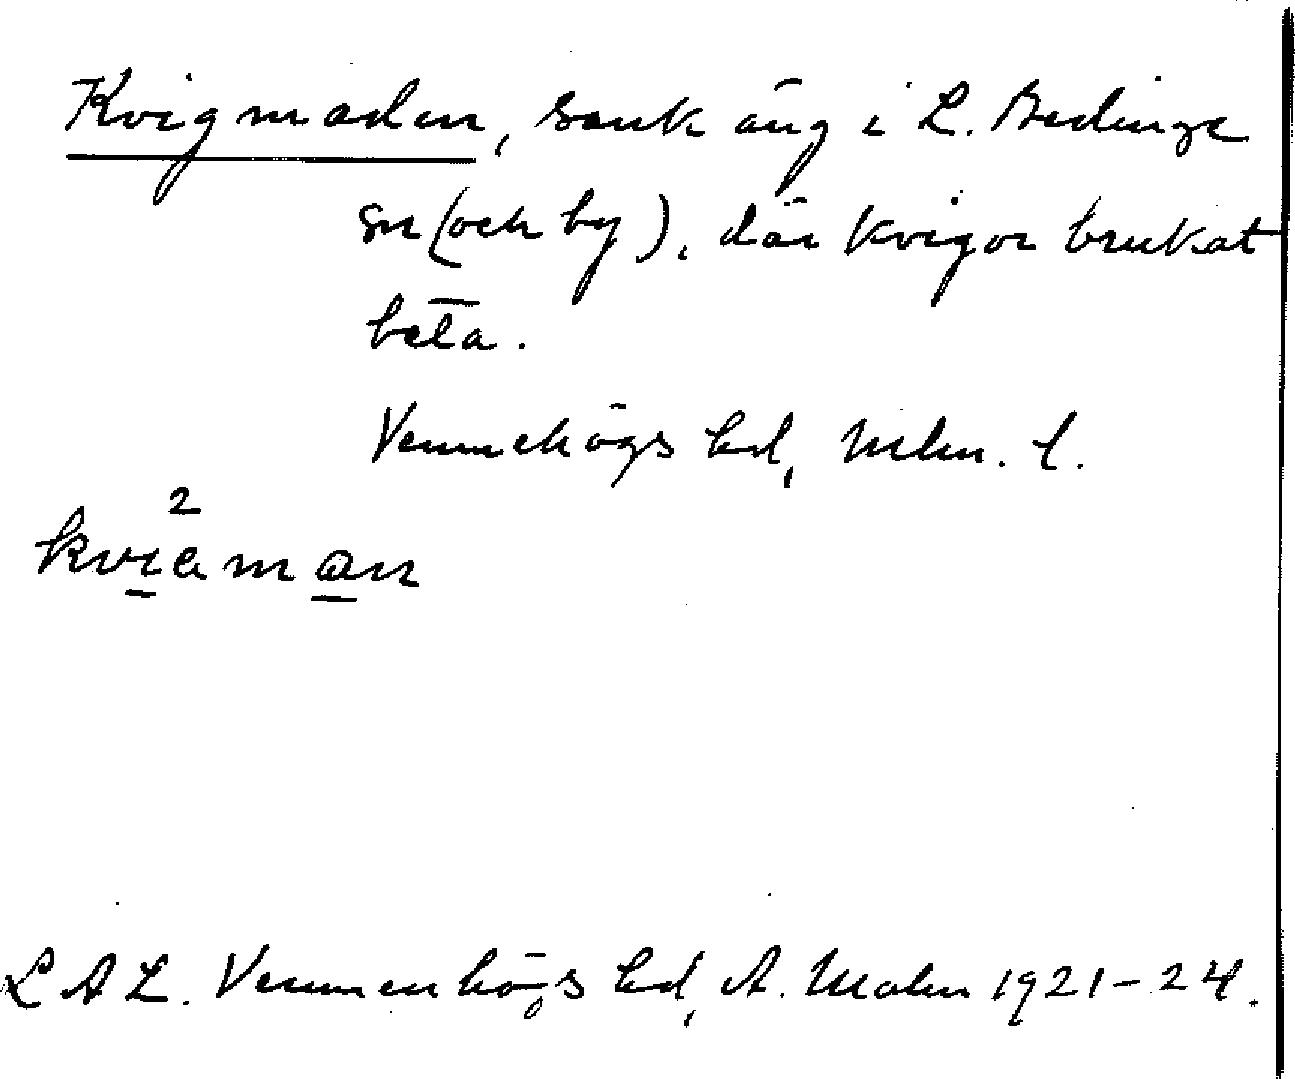 Kvigmaden, sank äng i L. Bedinge
sn (och by), där kvigor brukat
beta.
Vemmehögs hd, Mlm. l.
2
kviaman
L A L. Vemmenhögs hd, A. Malm 1921-24.